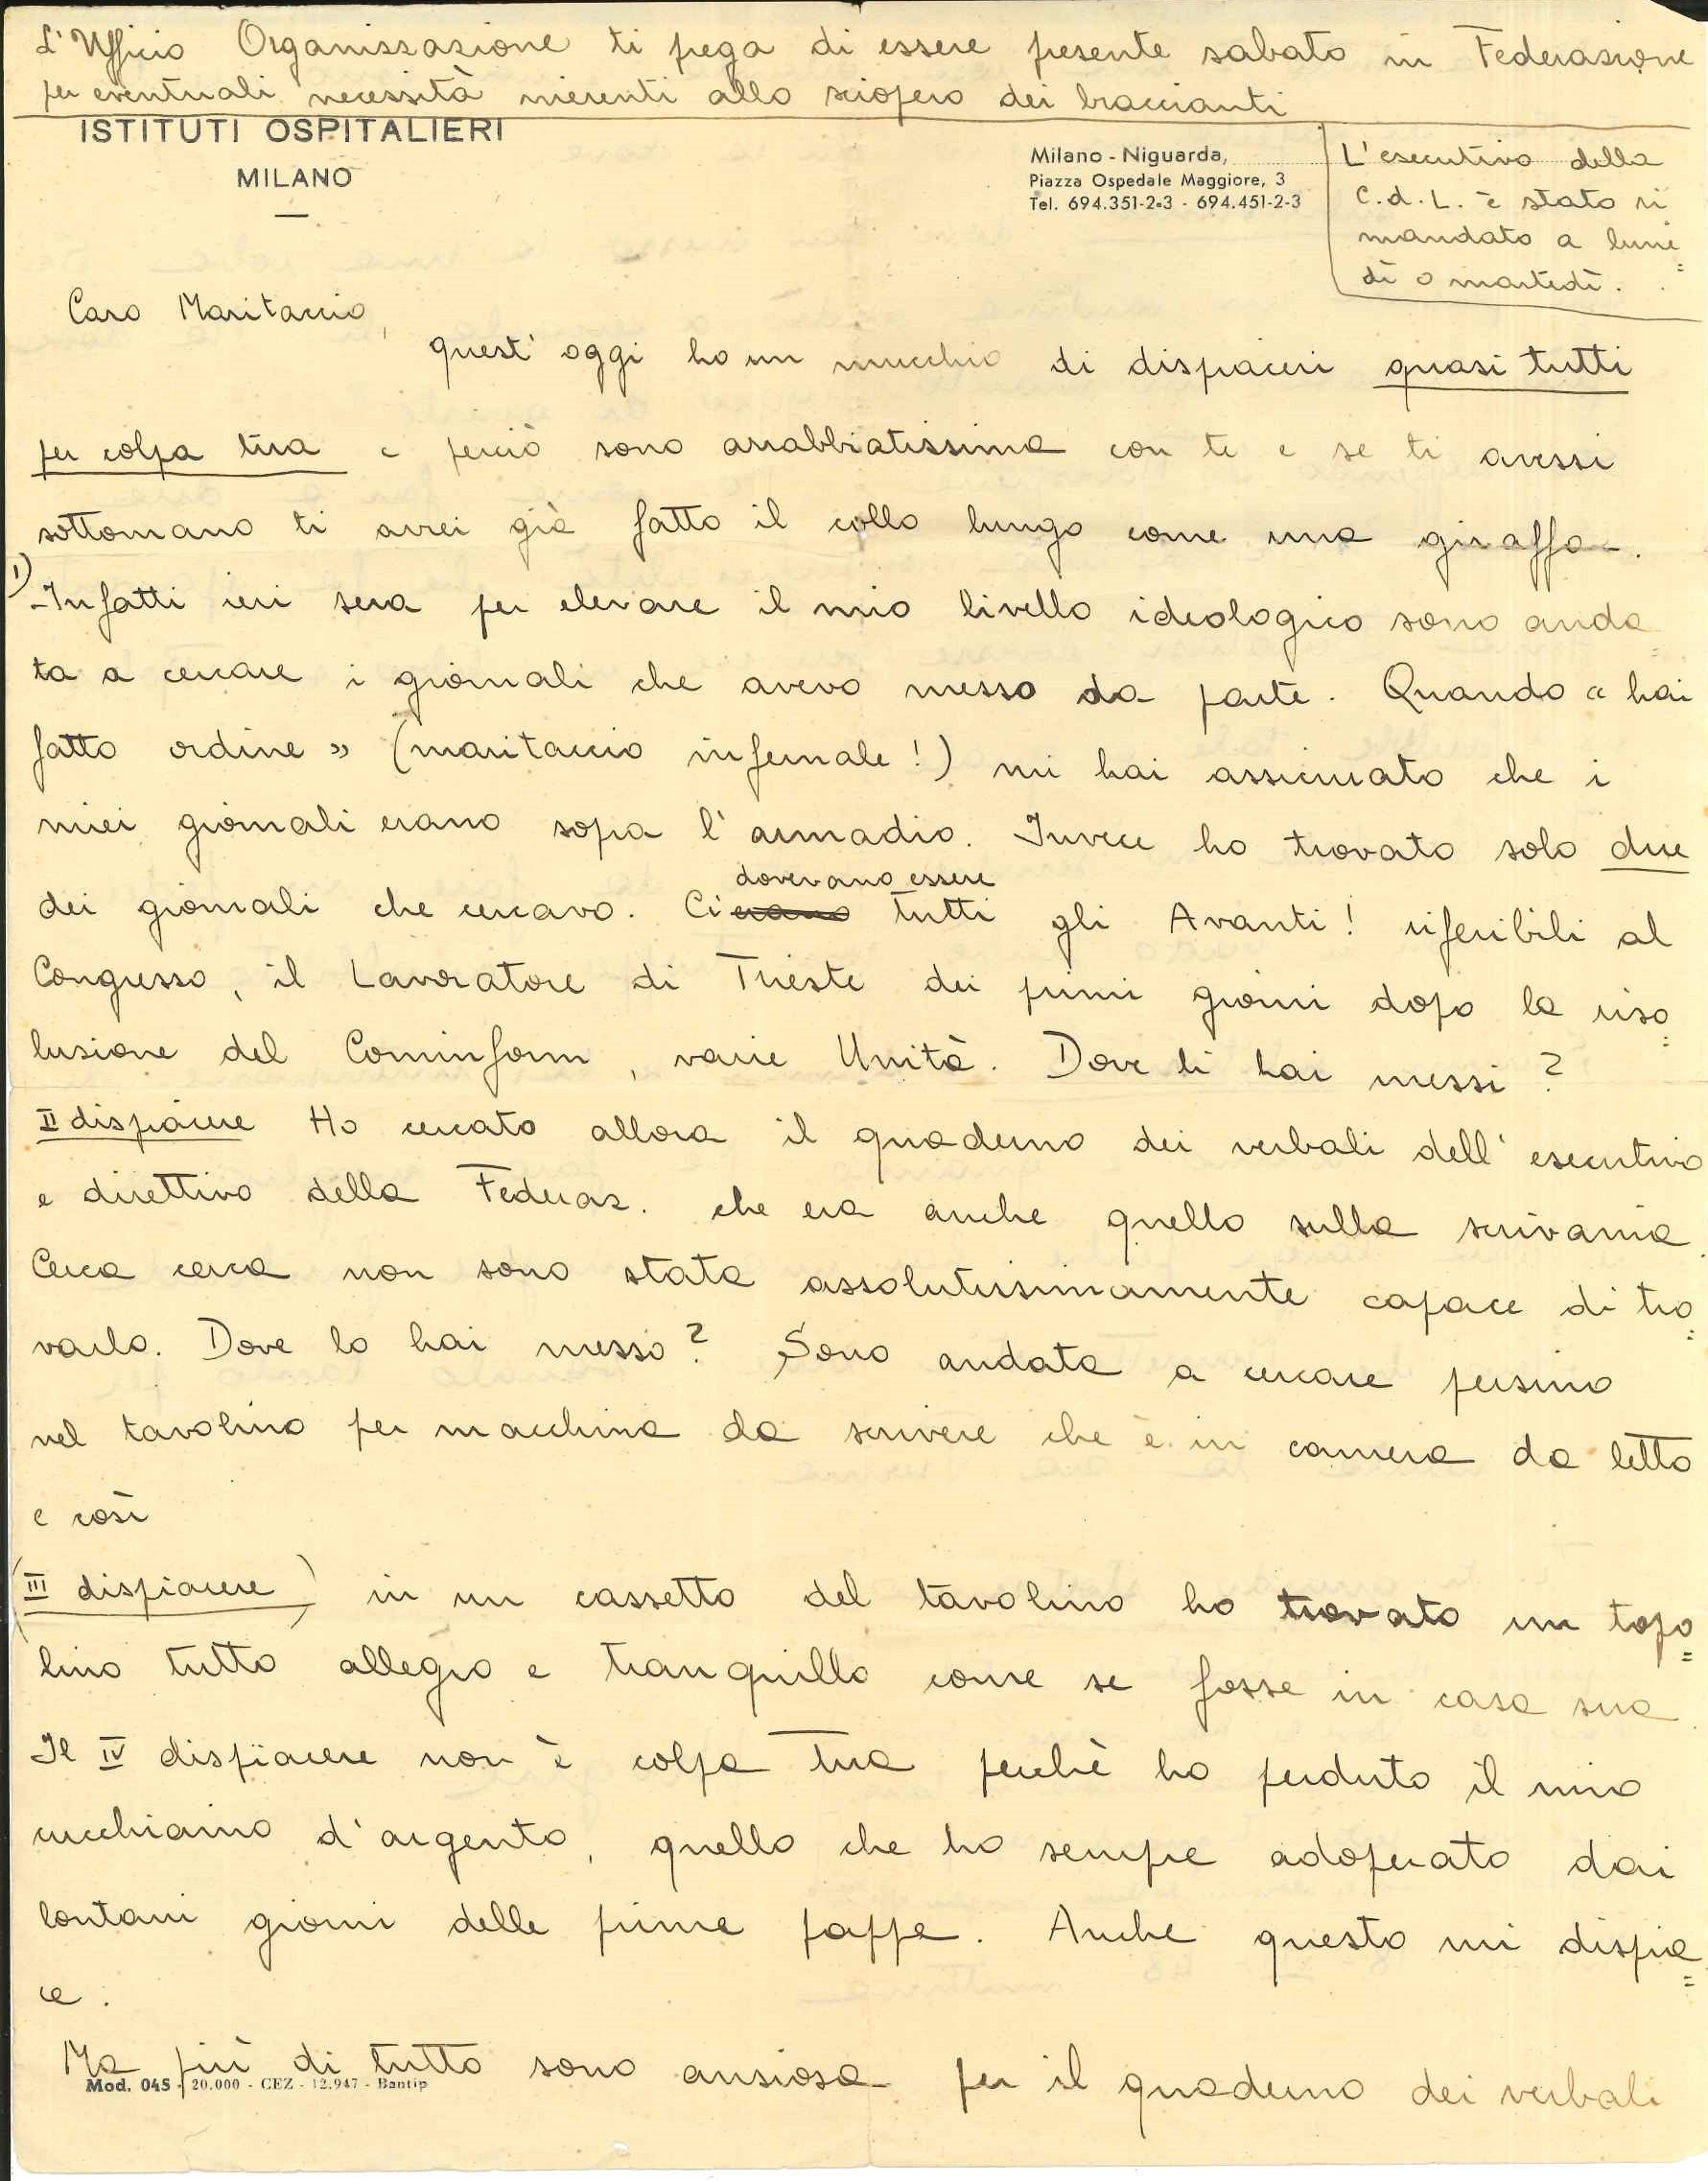 L'Ufficio Organizzazione ti prega di essere presente sabato in Federazione
per eventuali necessità inerenti allo sciopero dei braccianti
ISTITUTI OSPITALIERI
MILANO
Milano - Niguarda,
Piazza Ospedale Maggiore, 3
Tel. 694.351-2-3 - 694.451-2-3
L'esecutivo della
C.d.L. è stato ri
mandato a lune=
dì o martedì.
Caro Maritaccio,
quest'oggi ho un mucchio di dispiaceri quasi tutti
per colpa tua e perciò sono arrabbiatissima con te e se ti avessi
sottomano ti avrei già fatto il collo lungo come una giraffa.
1) - Infatti ieri sera per elevare il mio livello ideologico sono anda=
ta a cercare i giornali che avevo messo da parte. Quando « hai
fatto ordine » (maritaccio infernale!) mi hai assicurato che i
miei giornali erano sopra l'armadio. Invece ho trovato solo due
dovevano essere
dei giornali che cercavo. Ci erano tutti gli Avanti! riferibili al
Congresso, il Lavoratore di Trieste dei primi giorni dopo la riso=
luzione del Cominform, varie Unità. Dove li hai messi?
II dispiacere Ho cercato allora il quaderno dei verbali dell'esecutivo
e direttivo della Federaz. che era anche quello sulla scrivania.
Cerca cerca non sono stata assolutissimamente capace di tro=
varlo. Dove lo hai messo? Sono andata a cercare persino
nel tavolino per macchina da scrivere che è in camera da letto
e così
(III dispiacere) in un cassetto del tavolino ho trovato un topo=
lino tutto allegro e tranquillo come se fosse in casa sua.
Il IV dispiacere non è colpa tua perchè ho perduto il mio
cucchiaino d'argento, quello che ho sempre adoperato dai
lontani giorni delle prime pappe. Anche questo mi dispia=
ce.
Ma più di tutto sono ansiosa per il quaderno dei verbali
Mod. 045 - 20.000 - CEZ - 12.947 - Bantip